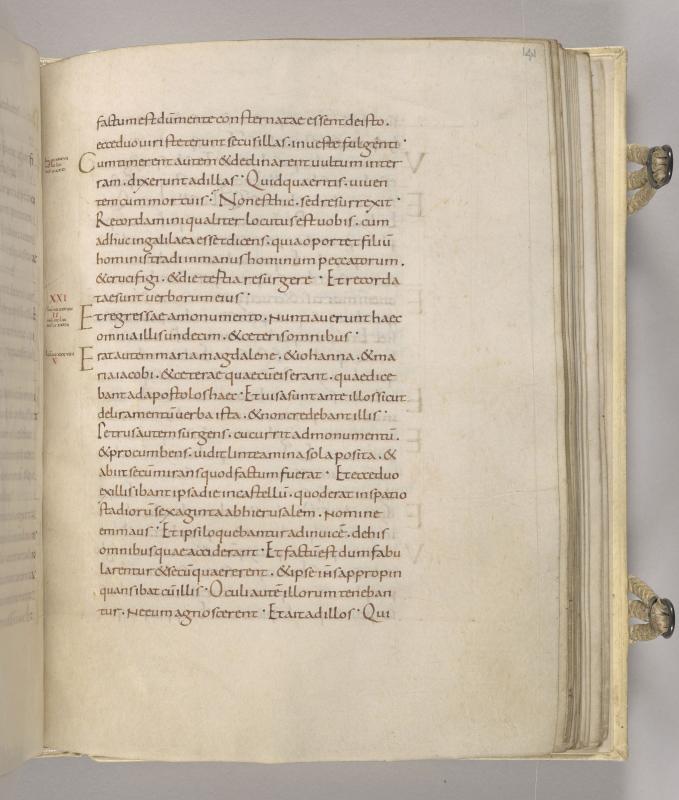 141
factumest dū mente consternatae essent deisto.
ecce duo uiri steterunt secus illas. in ueste fulgenti.
Cum timerent autem & declinarent uultum inter
ram. dixerunt ad illas. Quid quaeritis. uiuen
tem cum mortuis. Non est hic. sed resurrexit.
Recordamini qualiter locutus est uobis. cum
adhuc in galilaea esset dicens. quia oportet filiū
hominis tradi in manus hominum peccatorum.
& crucifigi. & die tertia resurgere. Et recorda
tae sunt uerborum eius.
XXI
Et regressae a monumento. Nuntiauerunt haec
omnia illis undecim. & ceteris omnibus.
Erat autem maria magdalene. & iohanna. & ma
ria iacobi. & ceterae quae cū eis erant. quae dice
bant ad apostolos haec. Et uisa sunt ante illos sicut
deliramentū uerba ista. & non credebant illis.
Petrus autem surgens. cucurrit ad monumentū.
& procumbens. uidit linteamina sola posita. &
abiit secum mirans quod factum fuerat. Et ecce duo
ex illis ibant ipsa die in castellū. quod erat in spatio
stadiorū sexaginta ab hierusalem. Nomine
emmaus. Et ipsi loquebantur ad inuicē. de his
omnibus quae acciderant. Et factū est dum fabu
larentur & secū quaererent. & ipse ihs appropin
quans ibat cū illis. Oculi autē illorum teneban
tur. Ne eum agnoscerent. Et ait ad illos. Qui